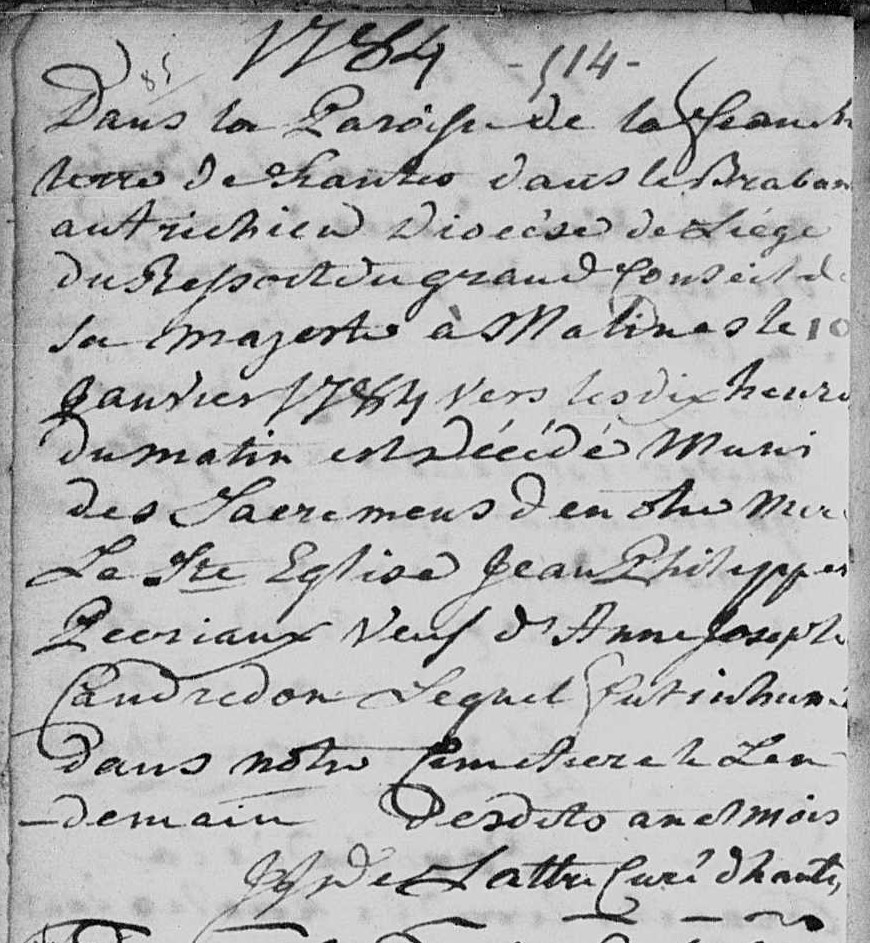 1784 - 514 -
85
Dans la Paroisse de la franche
terre de hantes dans le Braban
autrichien Diocése de Liége
du Ressort du grand Conseil de
sa majesté à Malines le 10
Janvier 1784 vers les dix heures
du matin est décédé Muni
des Sacremens de notre Mere
La Ste Eglise Jean Philippes
Pecriaux Veuf d'Anne Joseph
Caudredon Lequel fut inhumé
dans notre Cemetiere le Len
-demain desdits an et mois
De Lattre Curé d'hantes